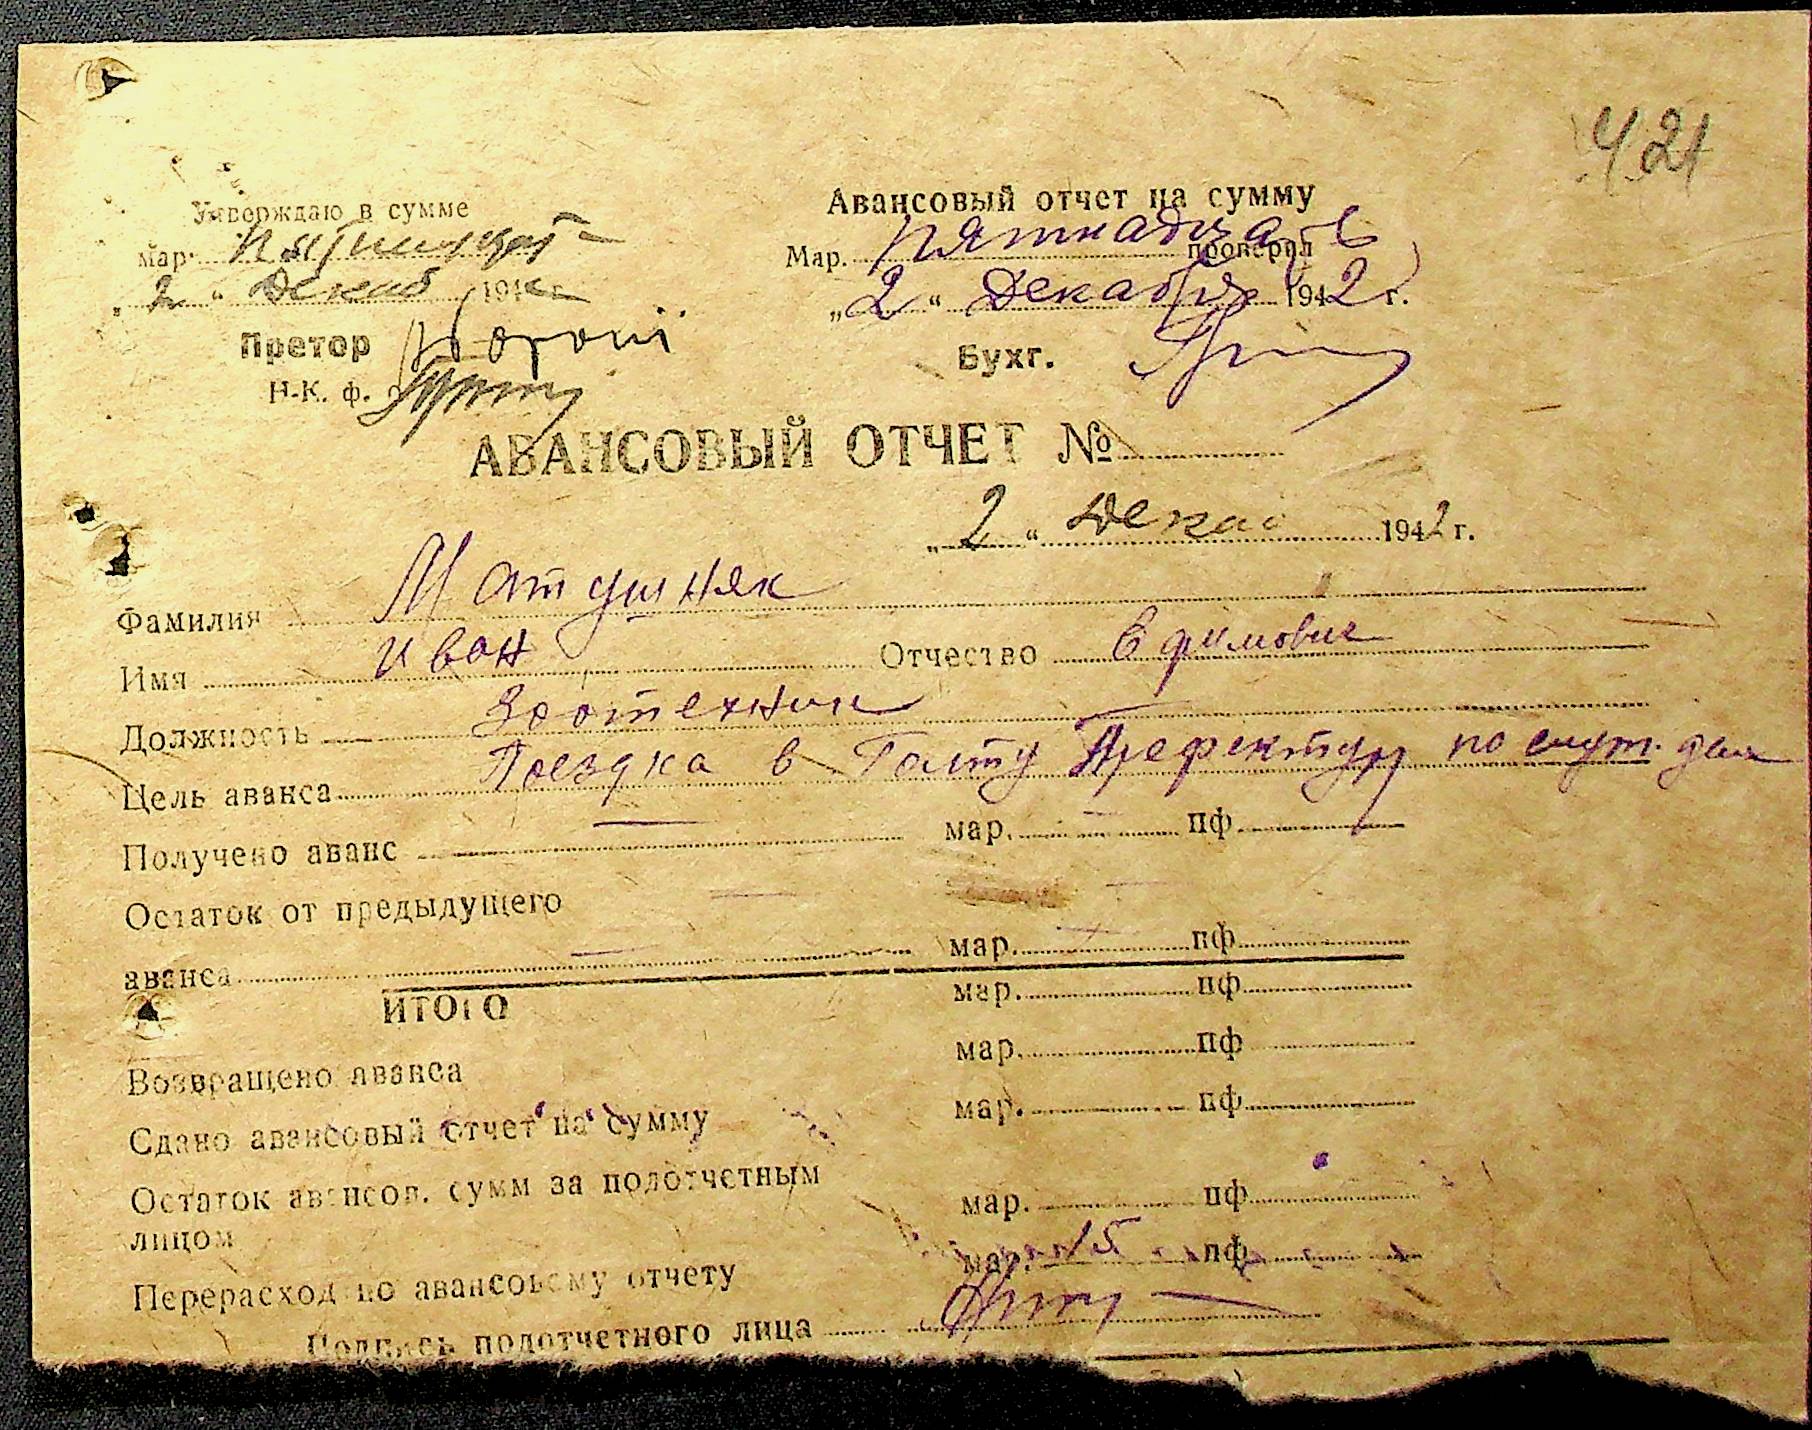 421
Утверждаю в сумме
мар. пятнадцать
„2“ Декаб 1942 г.
Претор
Н-К. ф. о
Авансовый отчет на сумму
Мар. пятнадцать проверил
„2“ Декабря 1942 г.
Бухг.
АВАНСОВЫЙ ОТЧЕТ №
„2“ Декаб 1942 г.
Фамилия Матушняк
Имя Иван Отчество Ефимович
Должность Зоотехник
Цель аванса Поездка в Голту Префектур по
Получено аванс — мар. — пф.
Остаток от предыдущего
аванса — мар. — пф.
ИТОГО мар. пф.
Возвращено аванса мар. пф.
Сдано авансовый отчет на сумму мар. пф.
Остаток авансов. сумм за подотчетным
лицом мар. пф.
Перерасход по авансовому отчету мар. 15 пф.
Подпись подотчетного лица